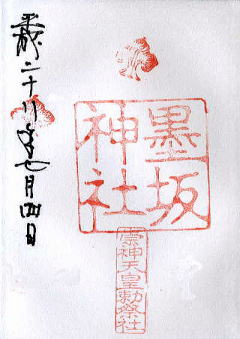 墨坂
神社
崇神天皇勅祭社
平成二十八年七月四日